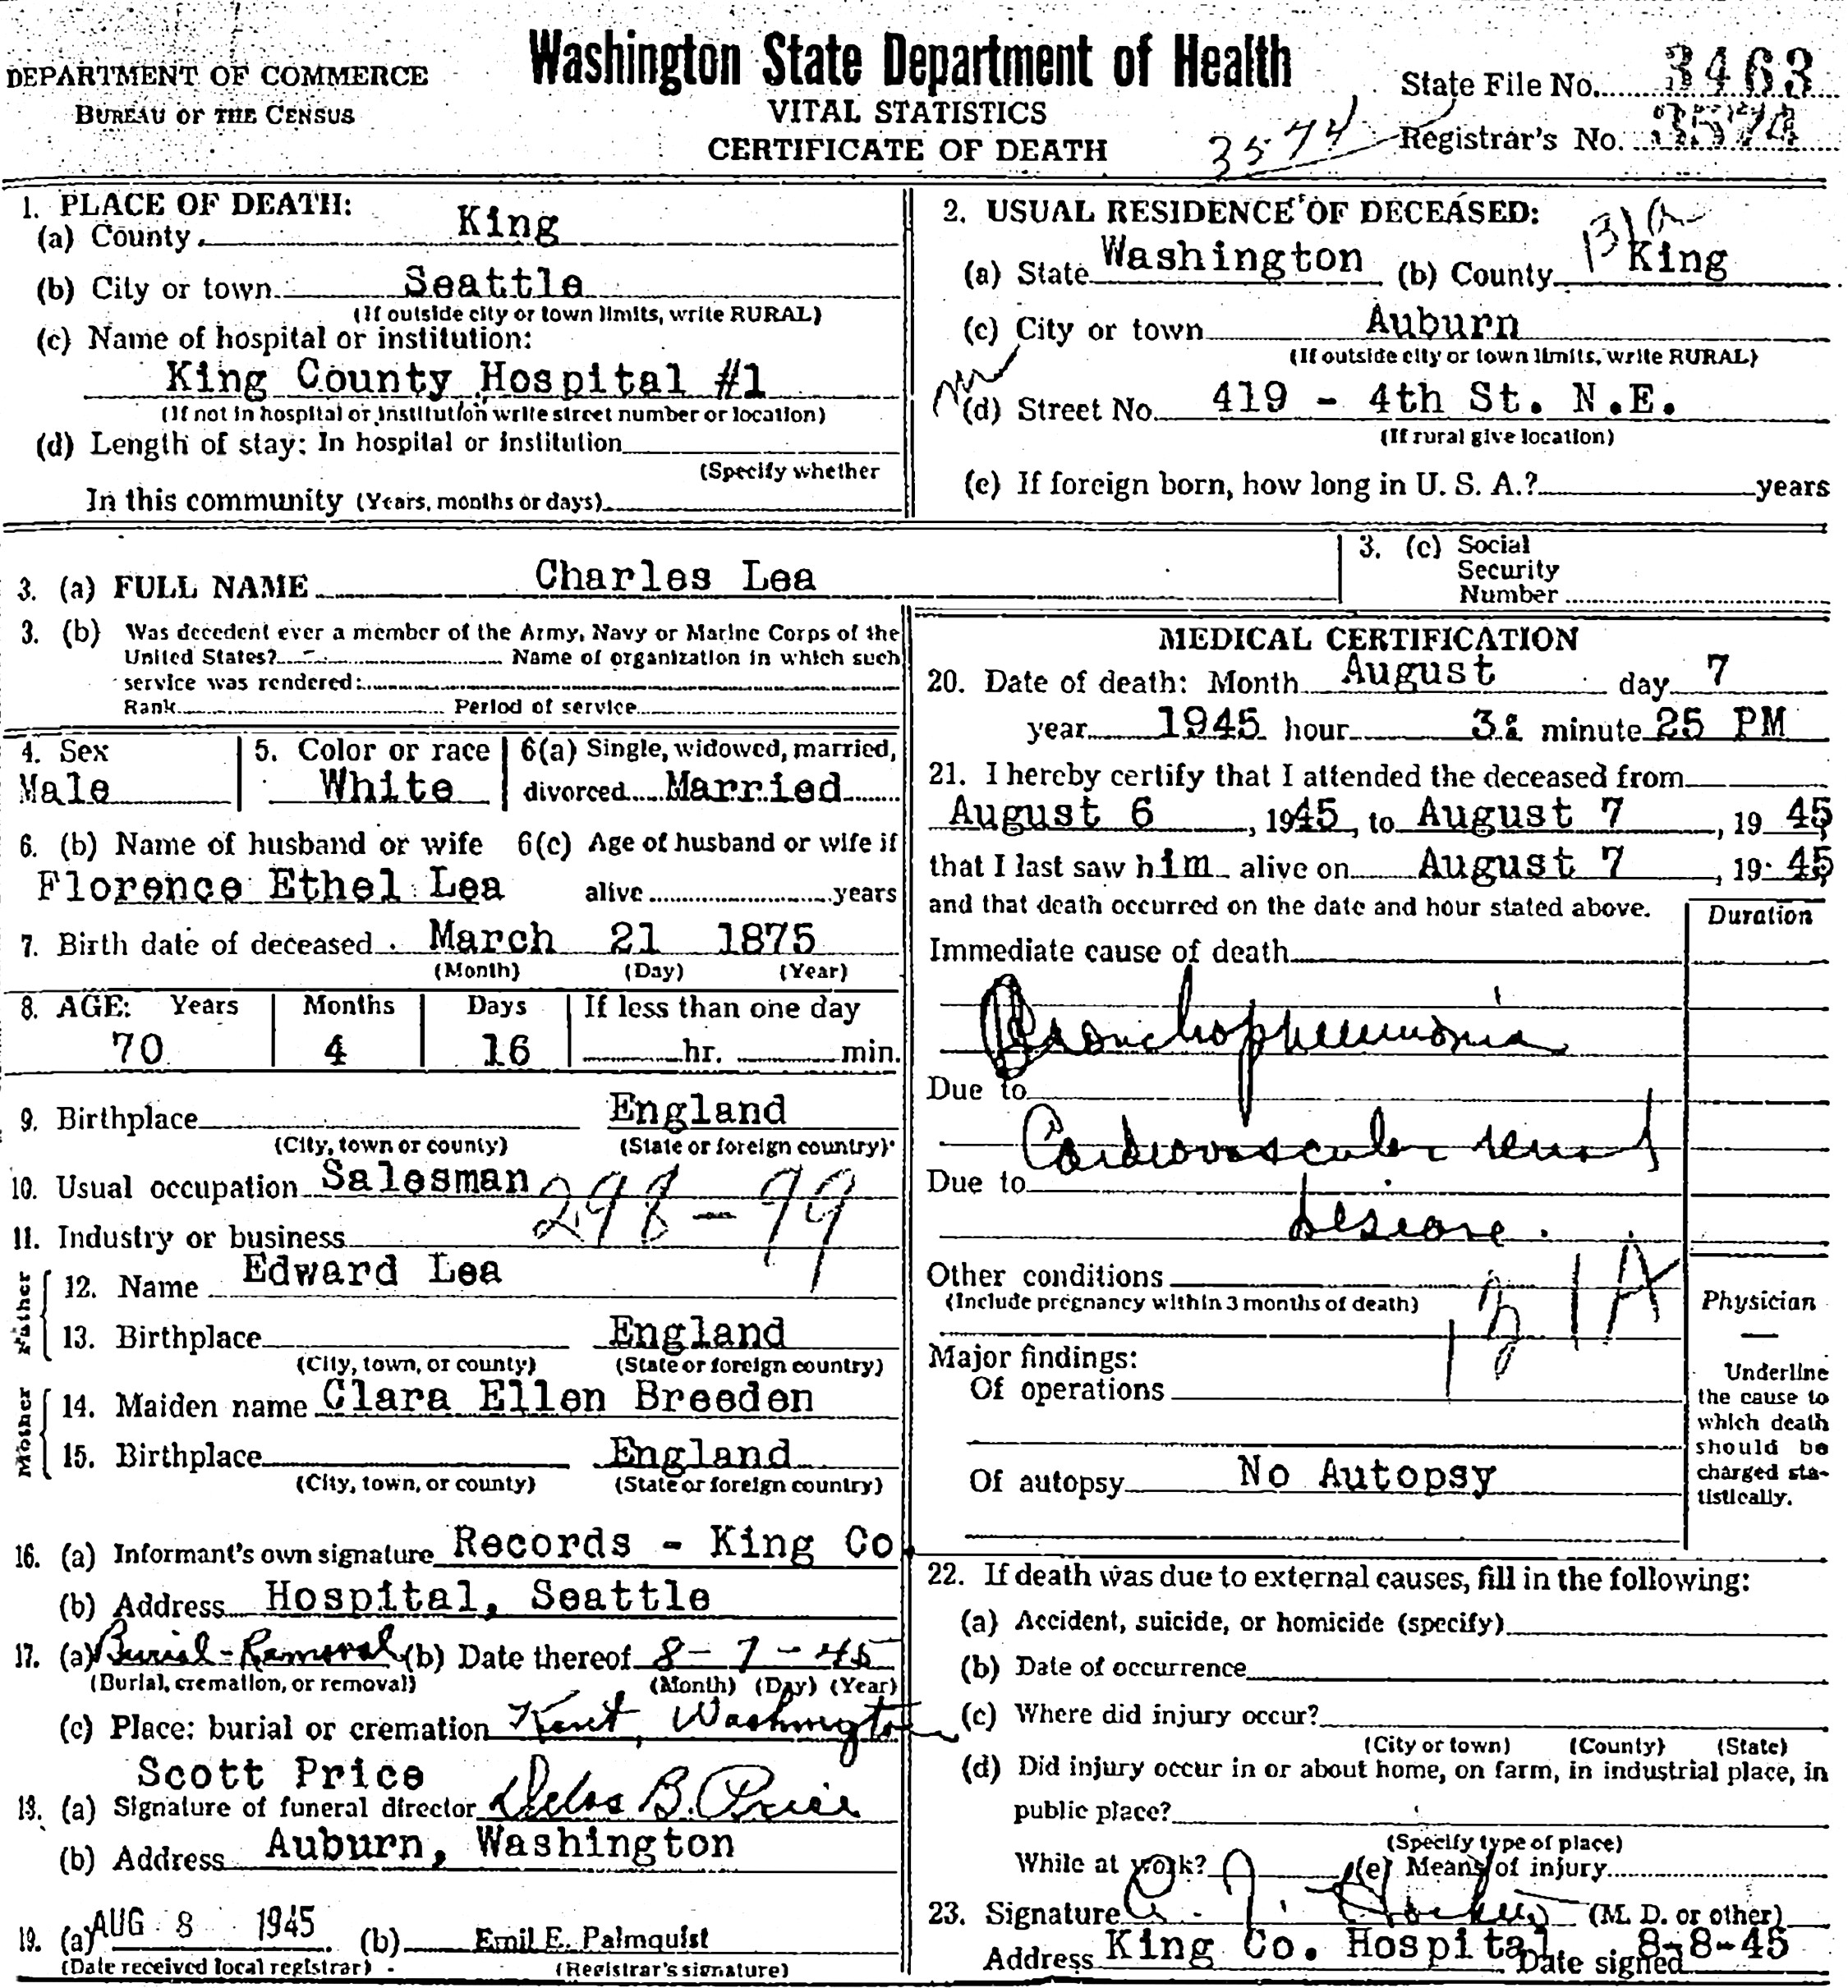 DEPARTMENT OF COMMERCE
BUREAU OF THE CENSUS
Washington State Department of Health
VITAL STATISTICS
CERTIFICATE OF DEATH
State File No. 3463
3574
Registrar's No. 3574
1. PLACE OF DEATH:
(a) County King
(b) City or town Seattle
(If outside city or town limits, write RURAL)
(c) Name of hospital or institution:
King County Hospital #1
(If not in hospital or institution write street number or location)
(d) Length of stay: In hospital or institution
(Specify whether
In this community (Years, months or days)
2. USUAL RESIDENCE OF DECEASED:
(a) State Washington (b) County King
(c) City or town Auburn
(If outside city or town limits, write RURAL)
(d) Street No. 419 - 4th St. N.E.
(If rural give location)
(e) If foreign born, how long in U. S. A.? years
3. (a) FULL NAME Charles Lea
3. (c) Social
Security
Number
3. (b) Was decedent ever a member of the Army, Navy or Marine Corps of the
United States? - Name of organization in which such
service was rendered:
Rank Period of service
4. Sex
Male
5. Color or race
White
6(a) Single, widowed, married,
divorced Married
6. (b) Name of husband or wife
Florence Ethel Lea
6(c) Age of husband or wife if
alive years
7. Birth date of deceased March 21 1875
(Month) (Day) (Year)
8. AGE: Years Months Days If less than one day
70 4 16 hr. min.
9. Birthplace England
(City, town or county) (State or foreign country)
10. Usual occupation Salesman
298-99
11. Industry or business
Father
12. Name Edward Lea
13. Birthplace England
(City, town, or county) (State or foreign country)
Mother
14. Maiden name Clara Ellen Breeden
15. Birthplace England
(City, town, or county) (State or foreign country)
16. (a) Informant's own signature Records - King Co.
(b) Address Hospital, Seattle
17. (a) Burial-Removal (b) Date thereof 8-7-45
(Burial, cremation, or removal) (Month) (Day) (Year)
(c) Place: burial or cremation Kent, Washington
Scott Price
18. (a) Signature of funeral director B. Price
(b) Address Auburn, Washington
19. (a) AUG 8 1945 (b) Emil E. Palmquist
(Date received local registrar) (Registrar's signature)
MEDICAL CERTIFICATION
20. Date of death: Month August day 7
year 1945 hour 3: minute 25 PM
21. I hereby certify that I attended the deceased from
August 6, 1945, to August 7, 1945,
that I last saw him alive on August 7, 1945,
and that death occurred on the date and hour stated above.
Duration
Immediate cause of death
Bronchopneumonia
Due to
Cardiovascular renal
Due to
disease.
Other conditions
(Include pregnancy within 3 months of death)
131A
Major findings:
Of operations
Of autopsy No Autopsy
Physician
—
Underline
the cause to
which death
should be
charged sta-
tistically.
22. If death was due to external causes, fill in the following:
(a) Accident, suicide, or homicide (specify)
(b) Date of occurrence
(c) Where did injury occur?
(City or town) (County) (State)
(d) Did injury occur in or about home, on farm, in industrial place, in
public place?
(Specify type of place)
While at work? (e) Means of injury
23. Signature (M. D. or other)
Address King Co. Hospital Date signed 8-8-45